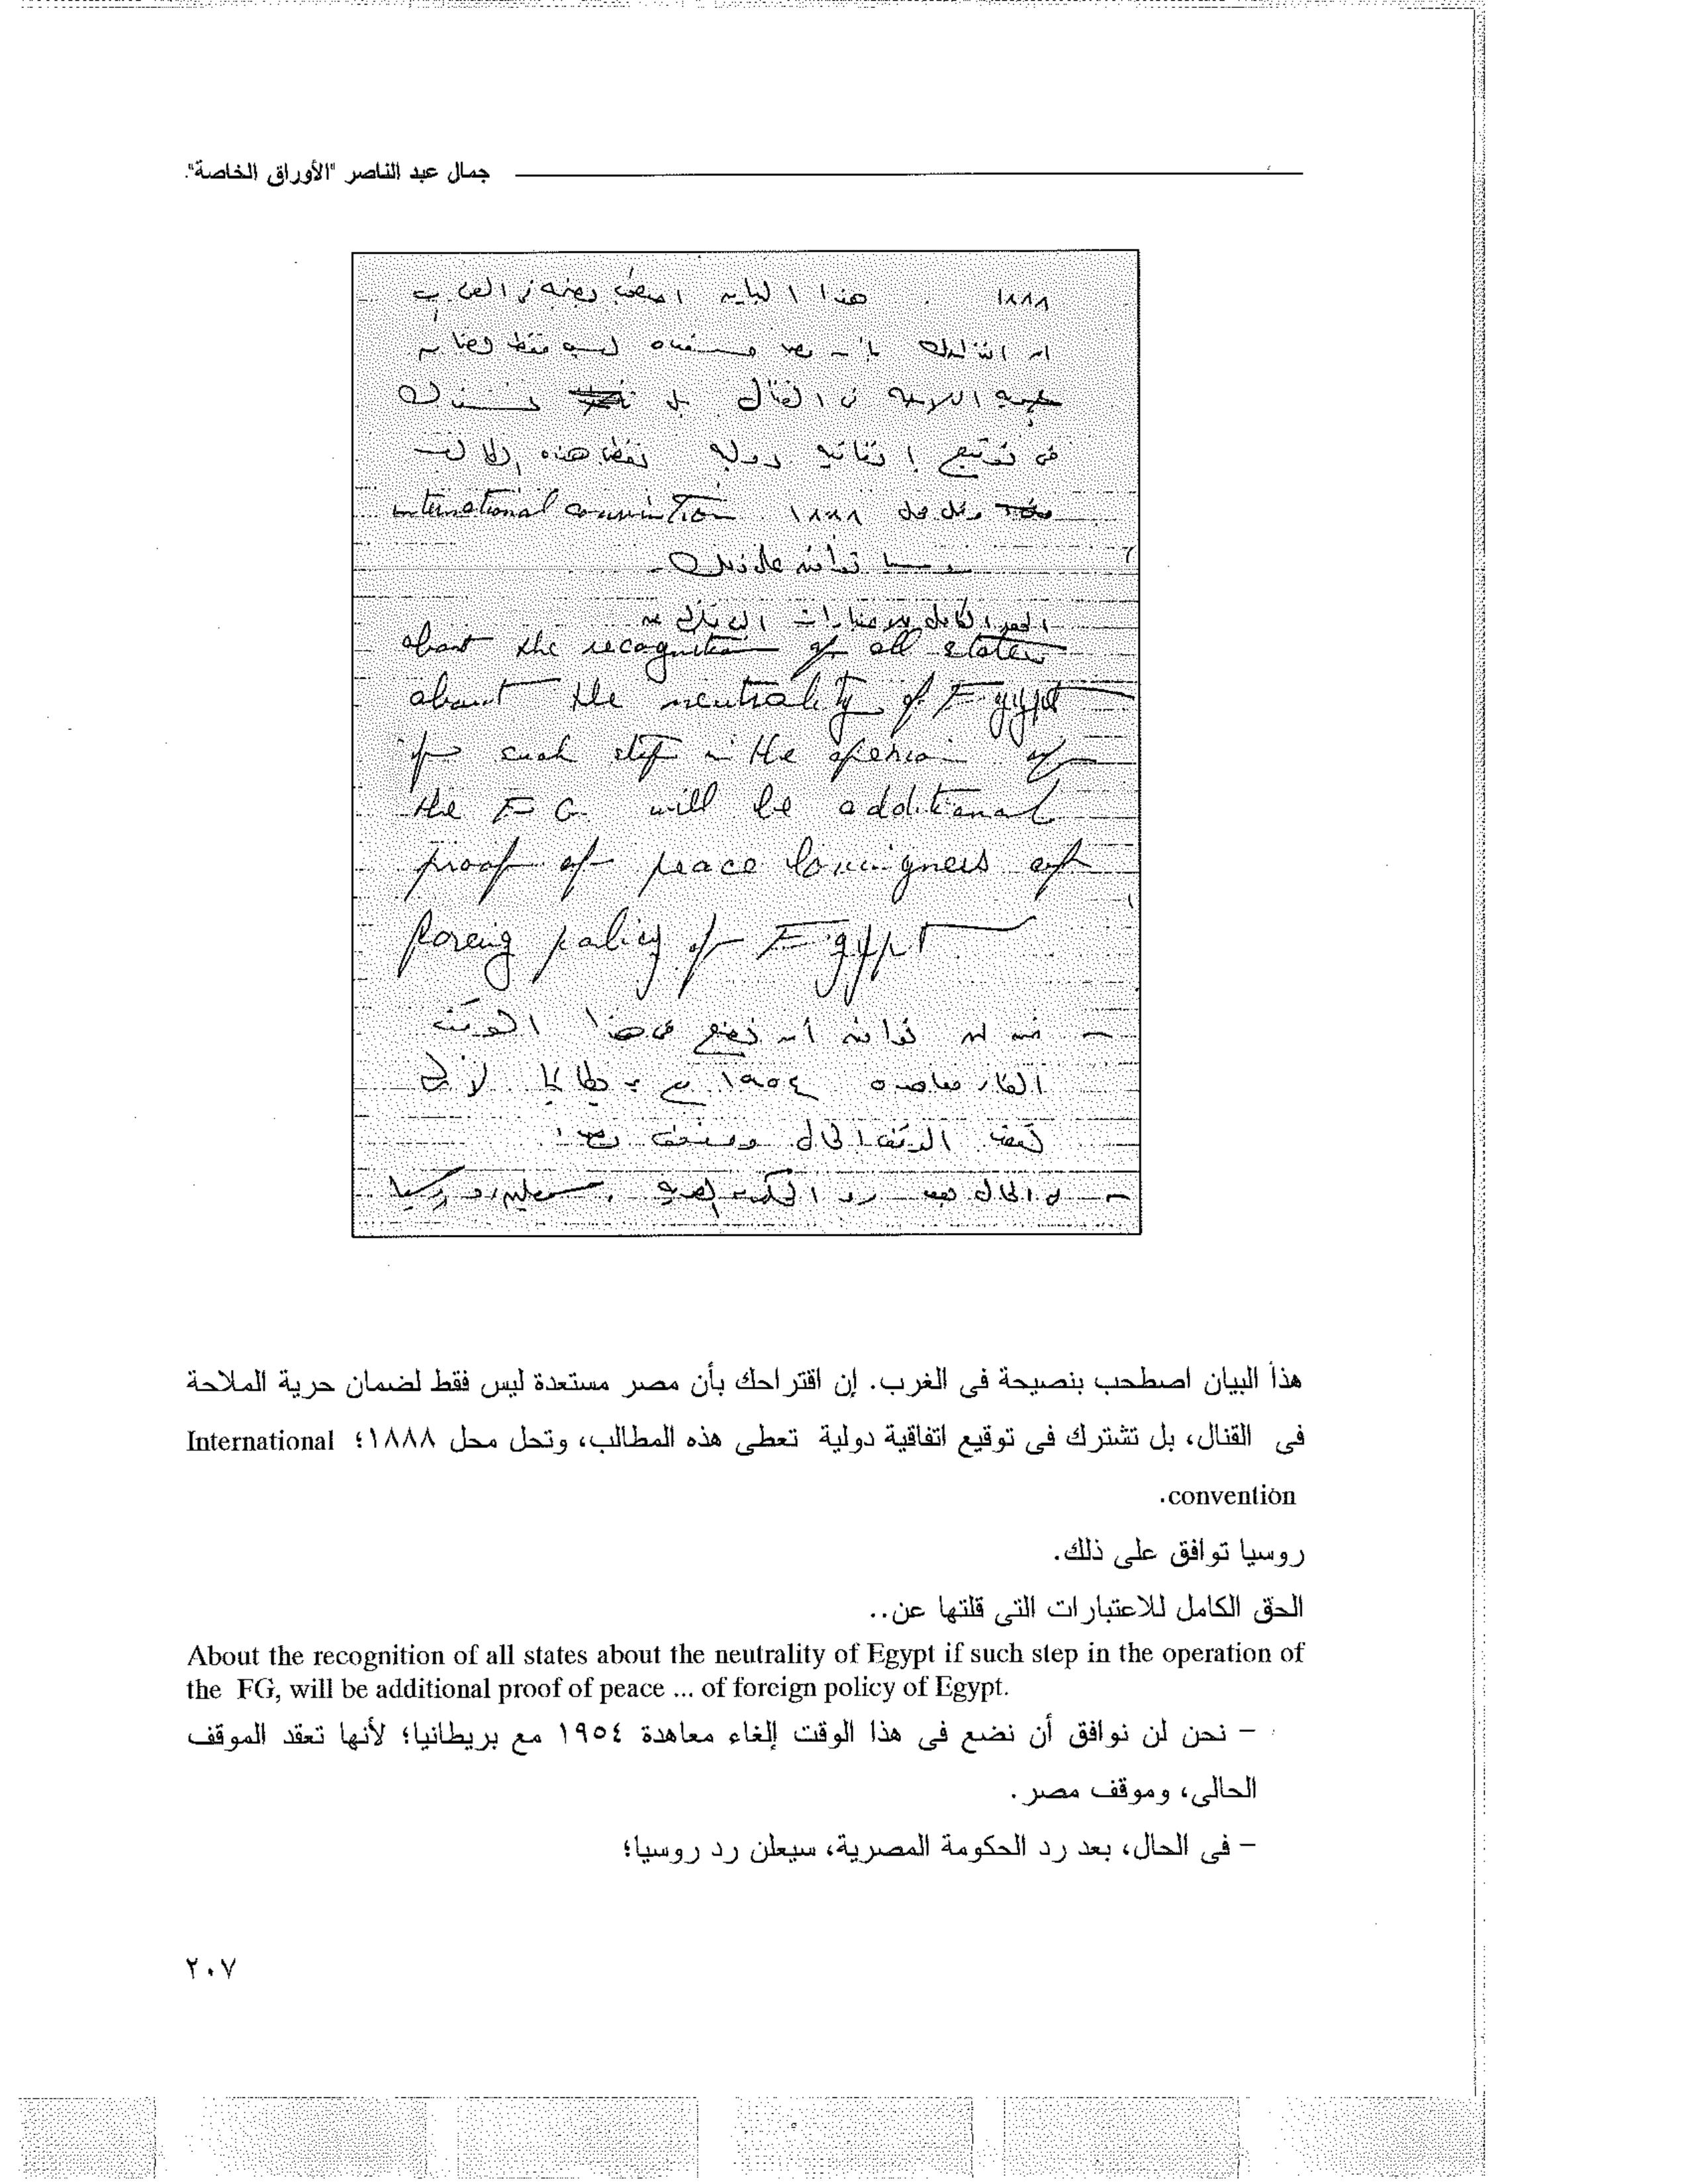 جمال عبد الناصر "الأوراق الخاصة".
١٨٨٨ . هذا البيان اصطحب بضجة فى الغرب
ان اقتراحك بأن مصر مستعده ليس فقط لضمان
حرية الملاحة فى القنال بل تشترك
فى توقيع اتفاقية دولية تعطى هذه المطالب
وتحل محل ١٨٨٨ international convention
روسيا توافق على ذلك -
الحق الكامل للاعتبارات
about the recognition of all states
about the neutrality of Egypt
if such step in the openion of
the E G. will be additional
proof of peace of
foreing policy of Egypt
- نحن لن نوافق أن نضع فى هذا الوقت
الغاء معاهده ١٩٥٤ مع بريطانيا لأنها
تعقد الموقف الحالى وموقف مصر .
- فى الحال بعد رد الحكومة المصرية . سيعلن رد روسيا
هذا البيان اصطحب بنصيحة فى الغرب. إن اقتراحك بأن مصر مستعدة ليس فقط لضمان حرية الملاحة
فى القنال، بل تشترك فى توقيع اتفاقية دولية تعطى هذه المطالب، وتحل محل ١٨٨٨؛ International
convention.
روسيا توافق على ذلك.
الحق الكامل للاعتبارات التى قلتها عن..
About the recognition of all states about the neutrality of Egypt if such step in the operation of
the FG, will be additional proof of peace ... of foreign policy of Egypt.
- نحن لن نوافق أن نضع فى هذا الوقت إلغاء معاهدة ١٩٥٤ مع بريطانيا؛ لأنها تعقد الموقف
الحالى، وموقف مصر.
- فى الحال، بعد رد الحكومة المصرية، سيعلن رد روسيا؛
٢٠٧